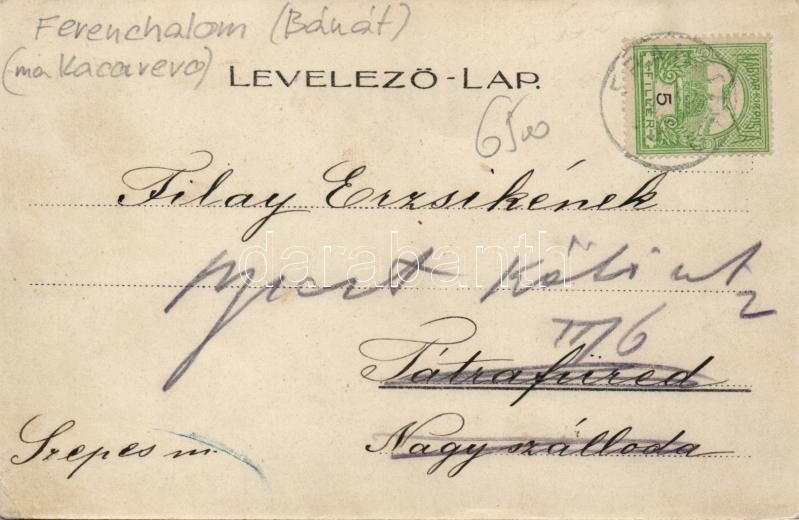 Ferenchalom (Bánát)
(ma Kacarevo)
LEVELEZŐ-LAP.
MAGYAR KIR. POSTA
5
FILLÉR
6500
Filay Erzsikének
darabanth.com
III/6
Tátrafüred
Szepes m.
Nagyszálloda